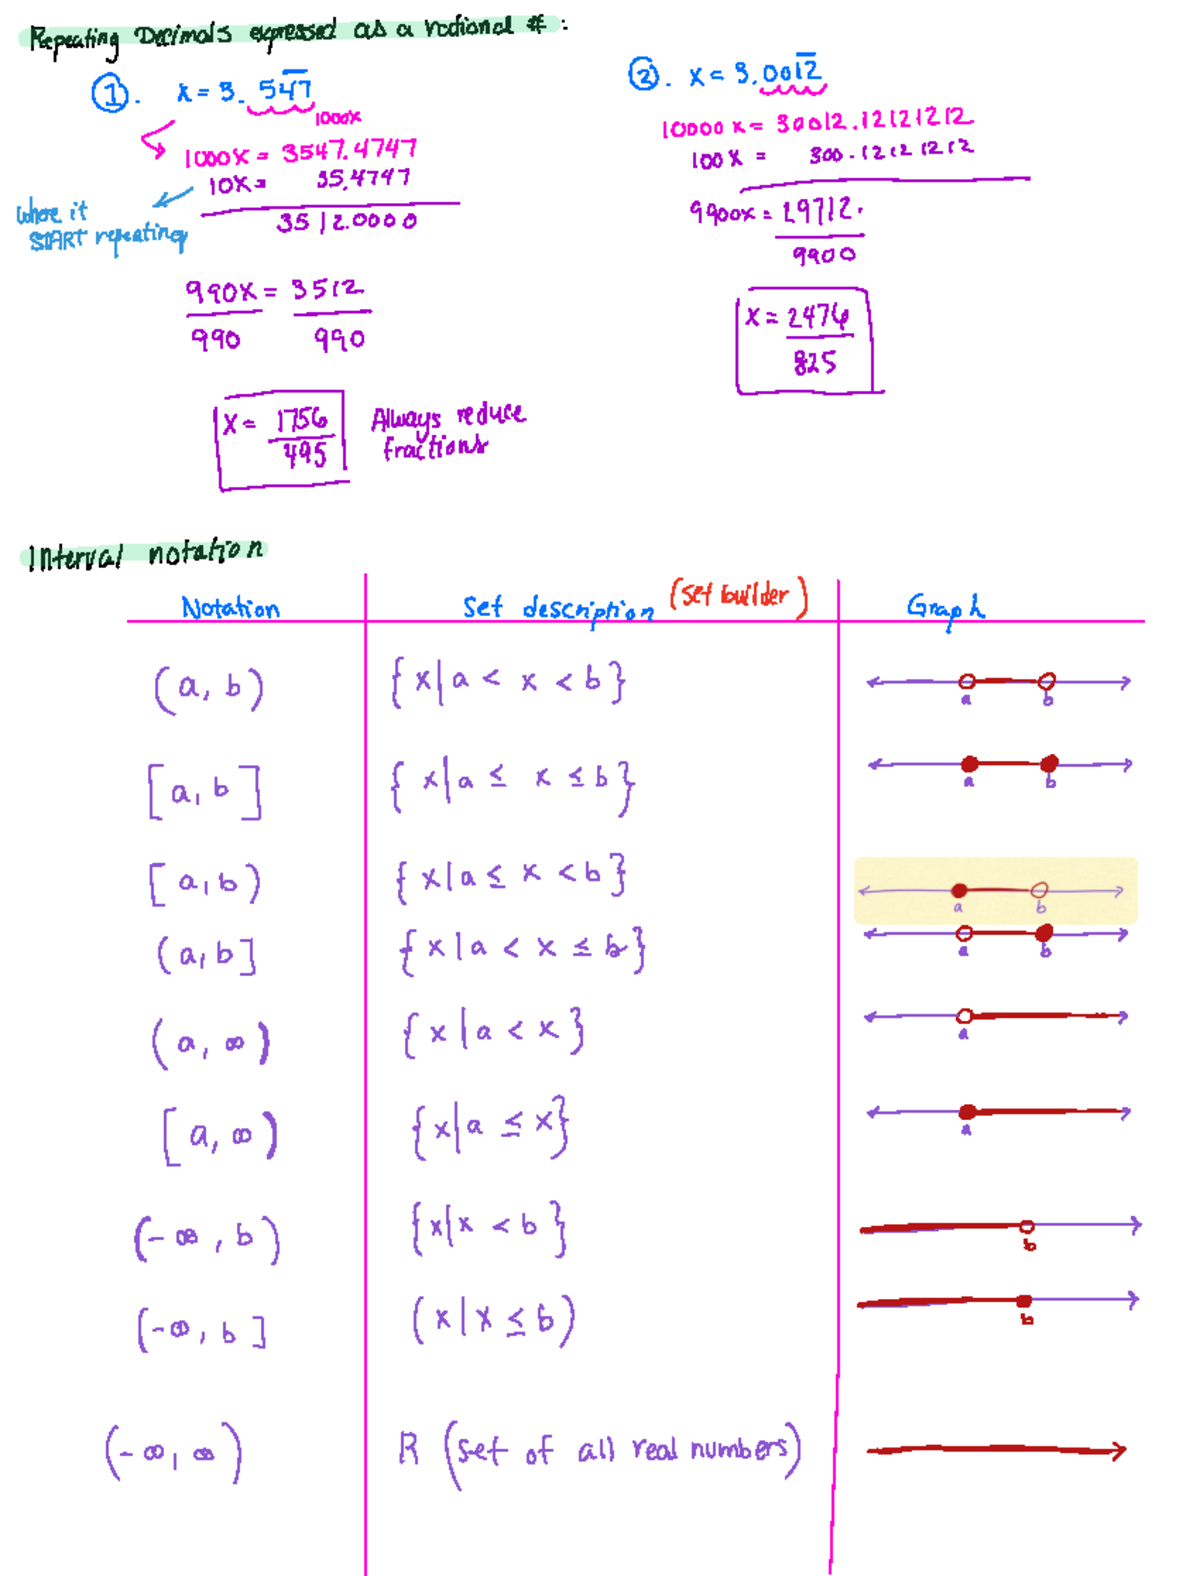 Repeating Decimals expressed as a rational #:
①. x = 3.54̅7̅
1000x
1000x = 3547.4747
10x = 35.4747
where it
START repeating
3512.0000
990x = 3512
990 990
x = 1756
495
Always reduce
fractions
②. x = 3.001̅2̅
10000x = 30012.12121212
100x = 300.12121212
9900x = 29712.
9900
x = 2476
825
Interval notation
Notation Set description (set builder) Graph
(a, b) {x|a < x < b} a b
[a, b] {x|a ≤ x ≤ b} a b
[a, b) {x|a ≤ x < b} a b
(a, b] {x|a < x ≤ b} a b
(a, ∞) {x|a < x} a
[a, ∞) {x|a ≤ x} a
(-∞, b) {x|x < b} b
(-∞, b] (x|x ≤ b) b
(-∞, ∞) R (set of all real numbers)